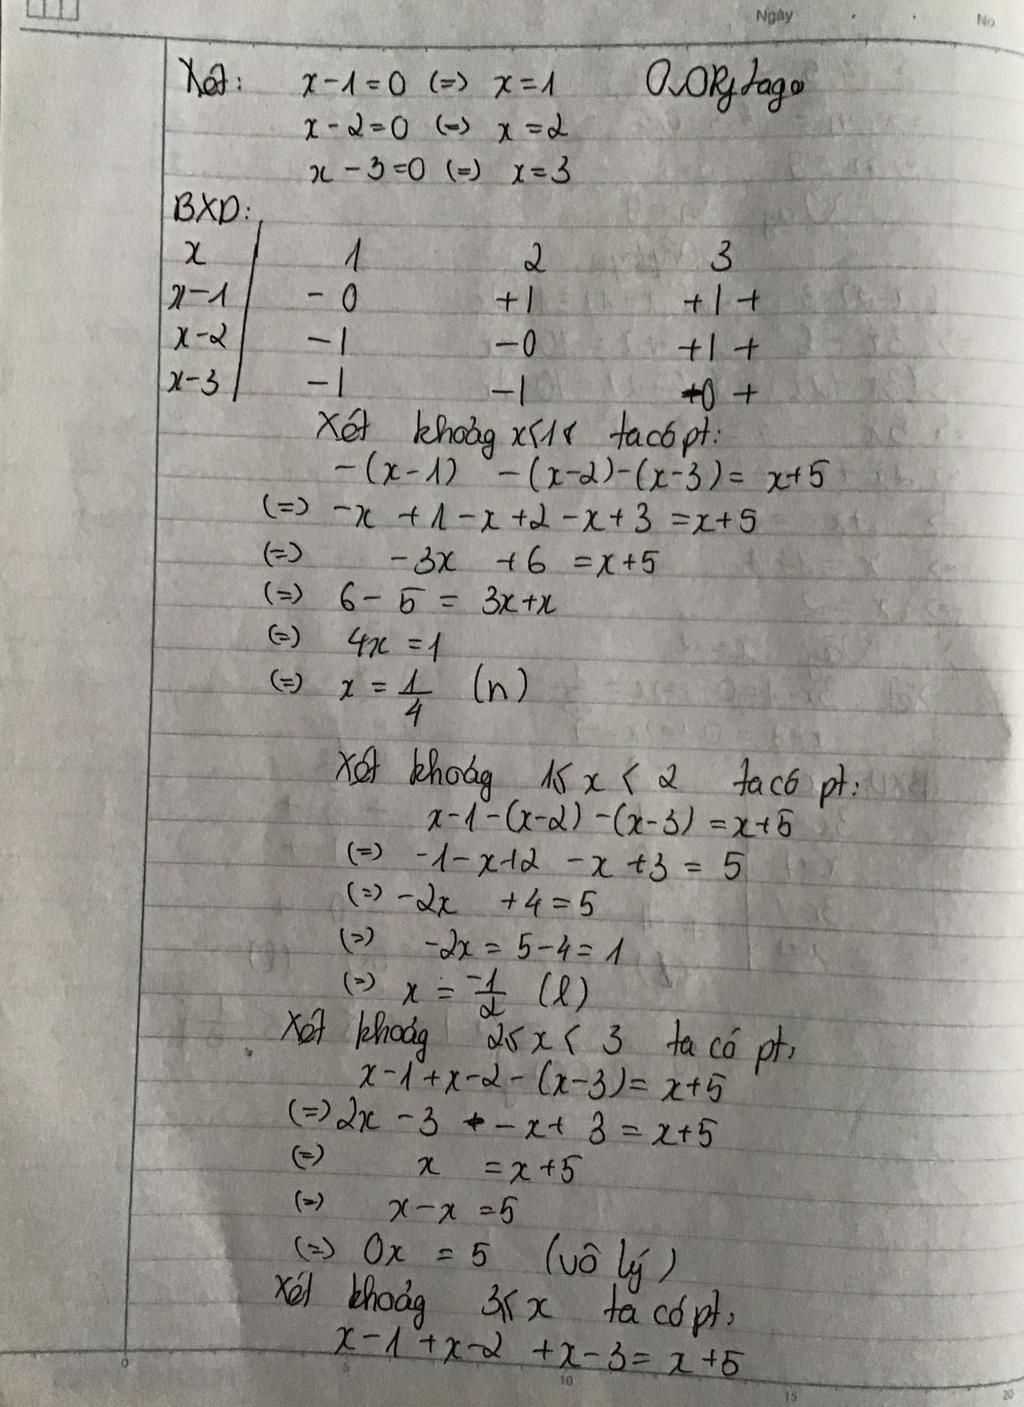 Ngày No
Xét: x-1=0 (=) x=1 O.ORytago
x-2=0 (=) x=2
x-3=0 (=) x=3
BXD:
x 1 2 3
x-1 - 0 +| +| +
x-2 -| -0 +| +
x-3 -| -| 0 +
Xét khoảg x<1 ta có pt:
-(x-1) -(x-2)-(x-3)= x+5
(=) -x +1-x+2-x+3=x+5
(=) -3x +6 =x+5
(=) 6-5= 3x+x
(=) 4x=1
(=) x=1/4 (n)
Xét khoảg 1≤x<2 ta có pt:
x-1-(x-2)-(x-3)=x+5
(=) -1-x+2-x+3=5
(=) -2x +4=5
(=) -2x=5-4=1
(=) x=-1/2 (l)
Xét khoảg 2≤x<3 ta có pt:
x-1+x-2-(x-3)=x+5
(=) 2x-3 -x+3=x+5
(=) x =x+5
(=) x-x=5
(=) 0x=5 (vô lý)
Xét khoảg 3≤x ta có pt:
x-1+x-2+x-3=x+5
0 5 10 15 20